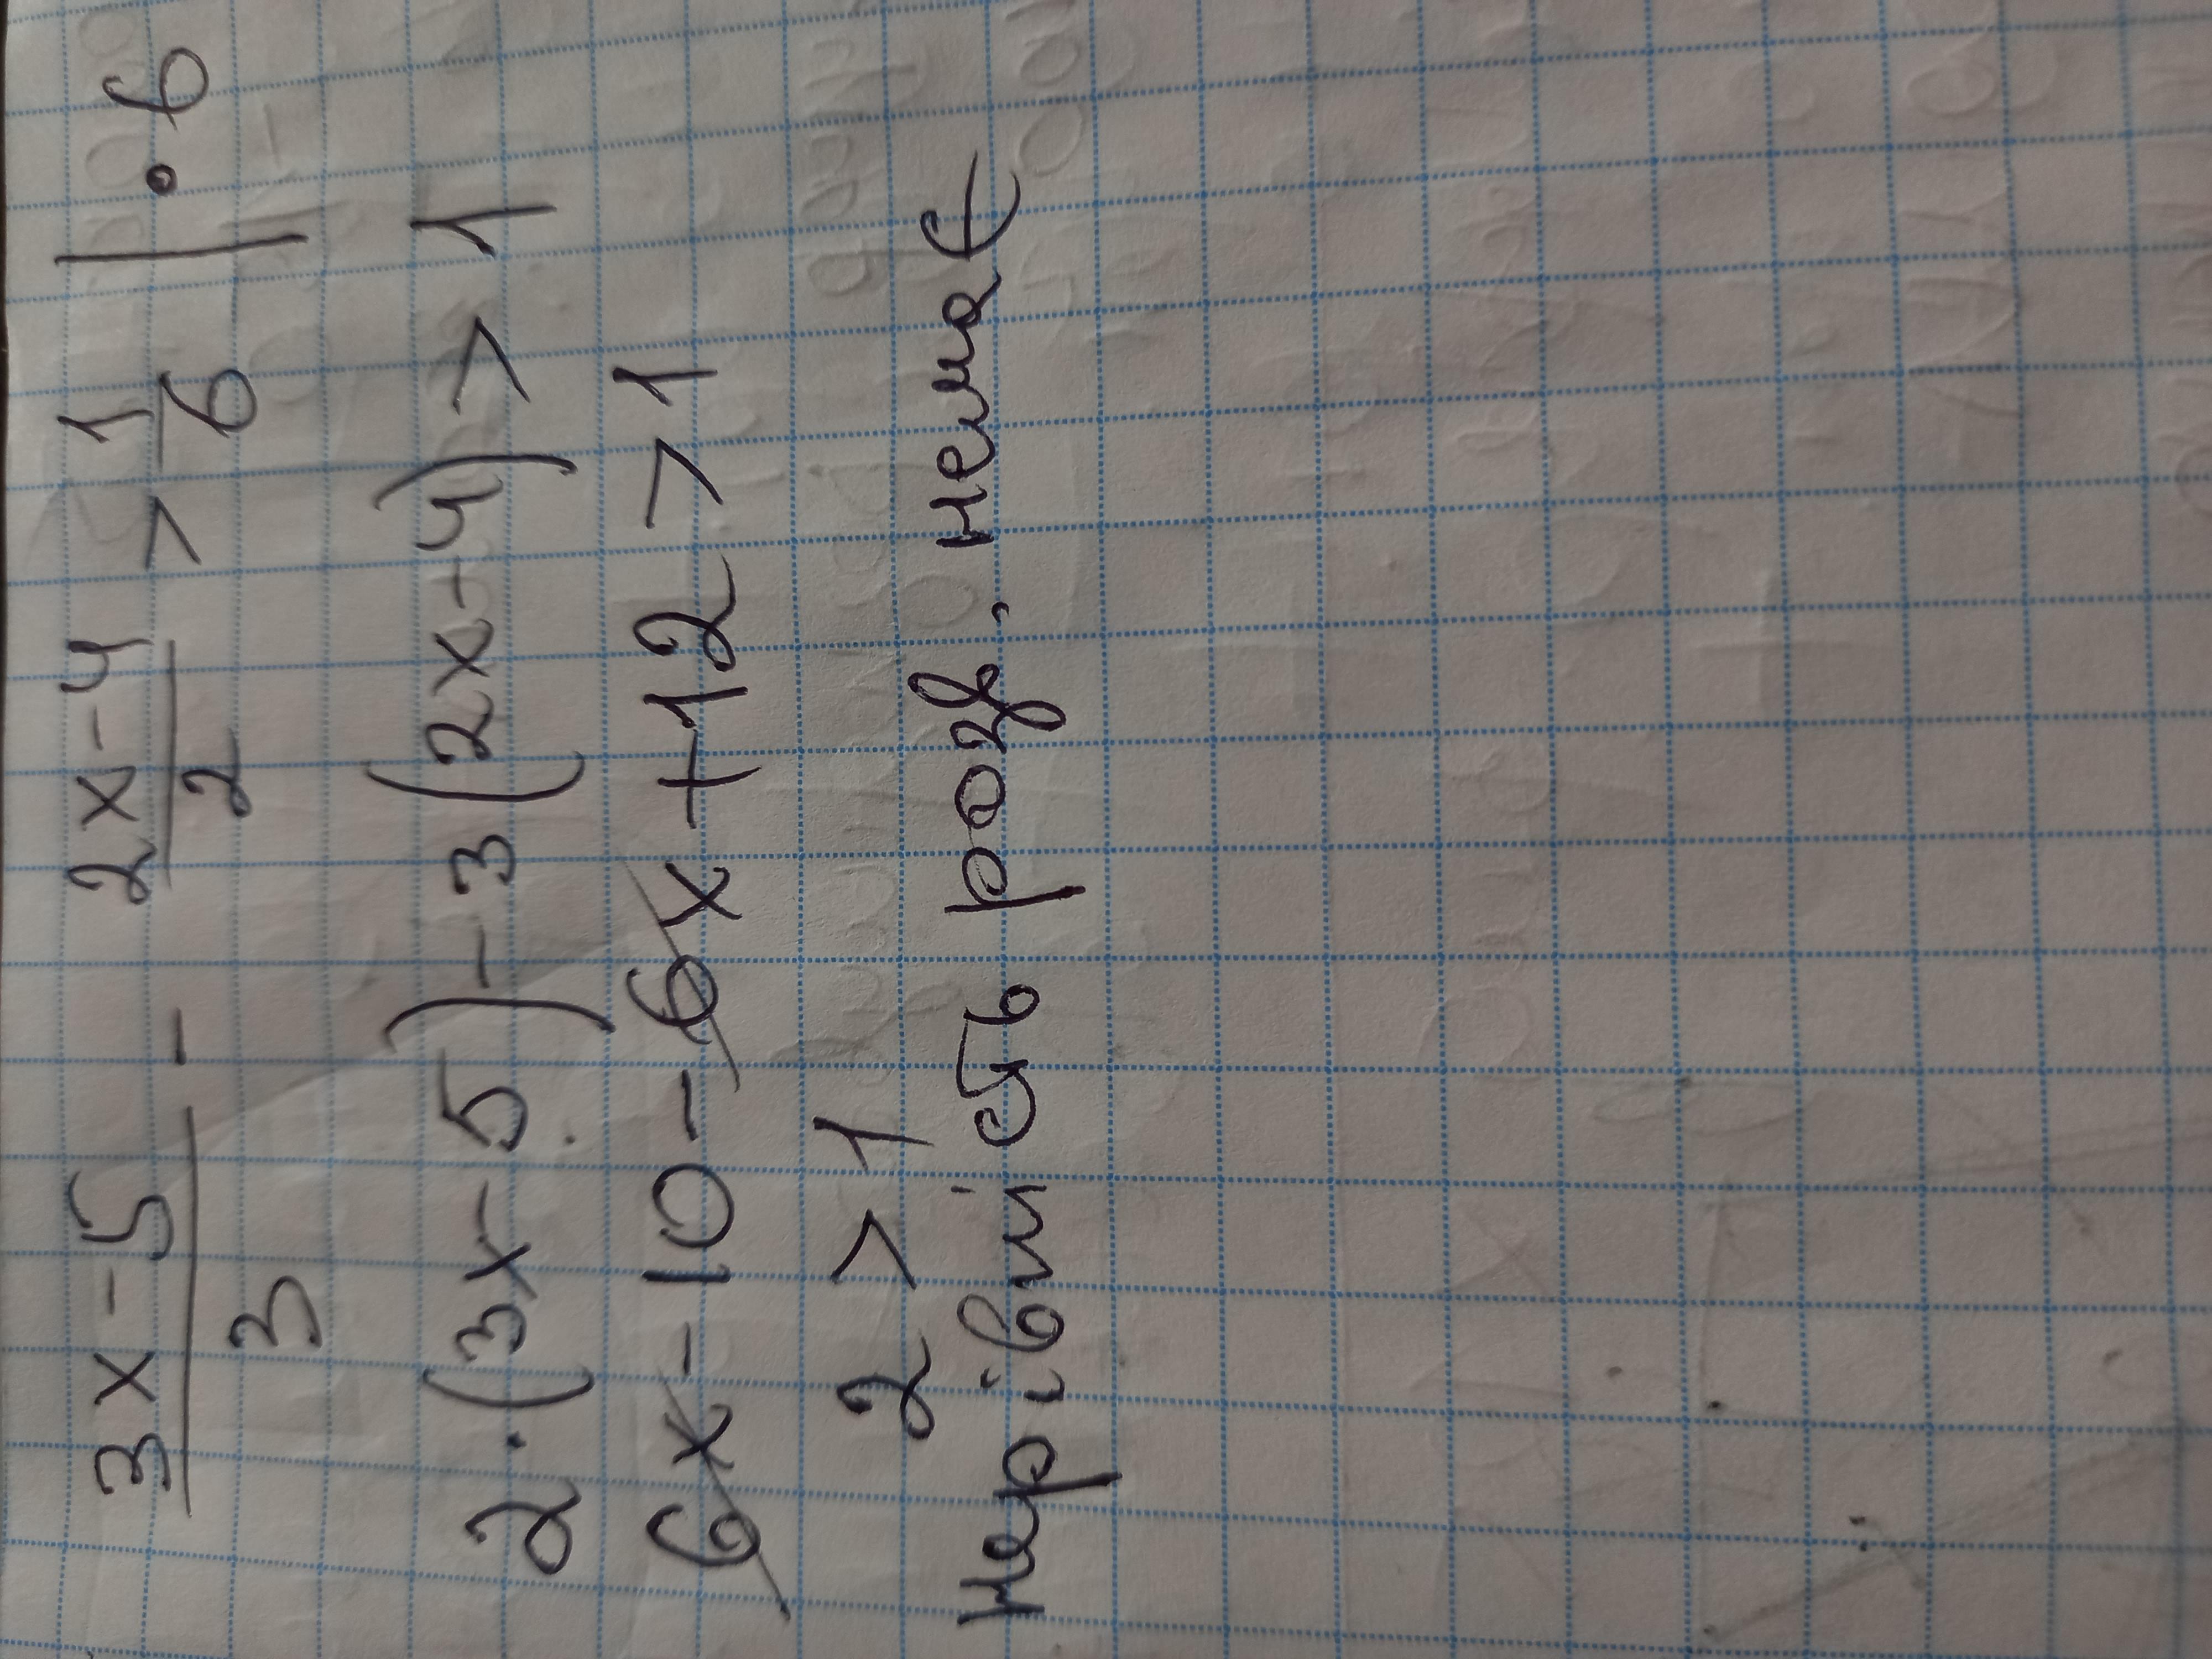 3x-5/3 - 2x-4/2 > 1/6 | • 6
2·(3x-5)-3(2x-4)>1
6x-10-6x+12>1
2>1
нерівність розв. немає